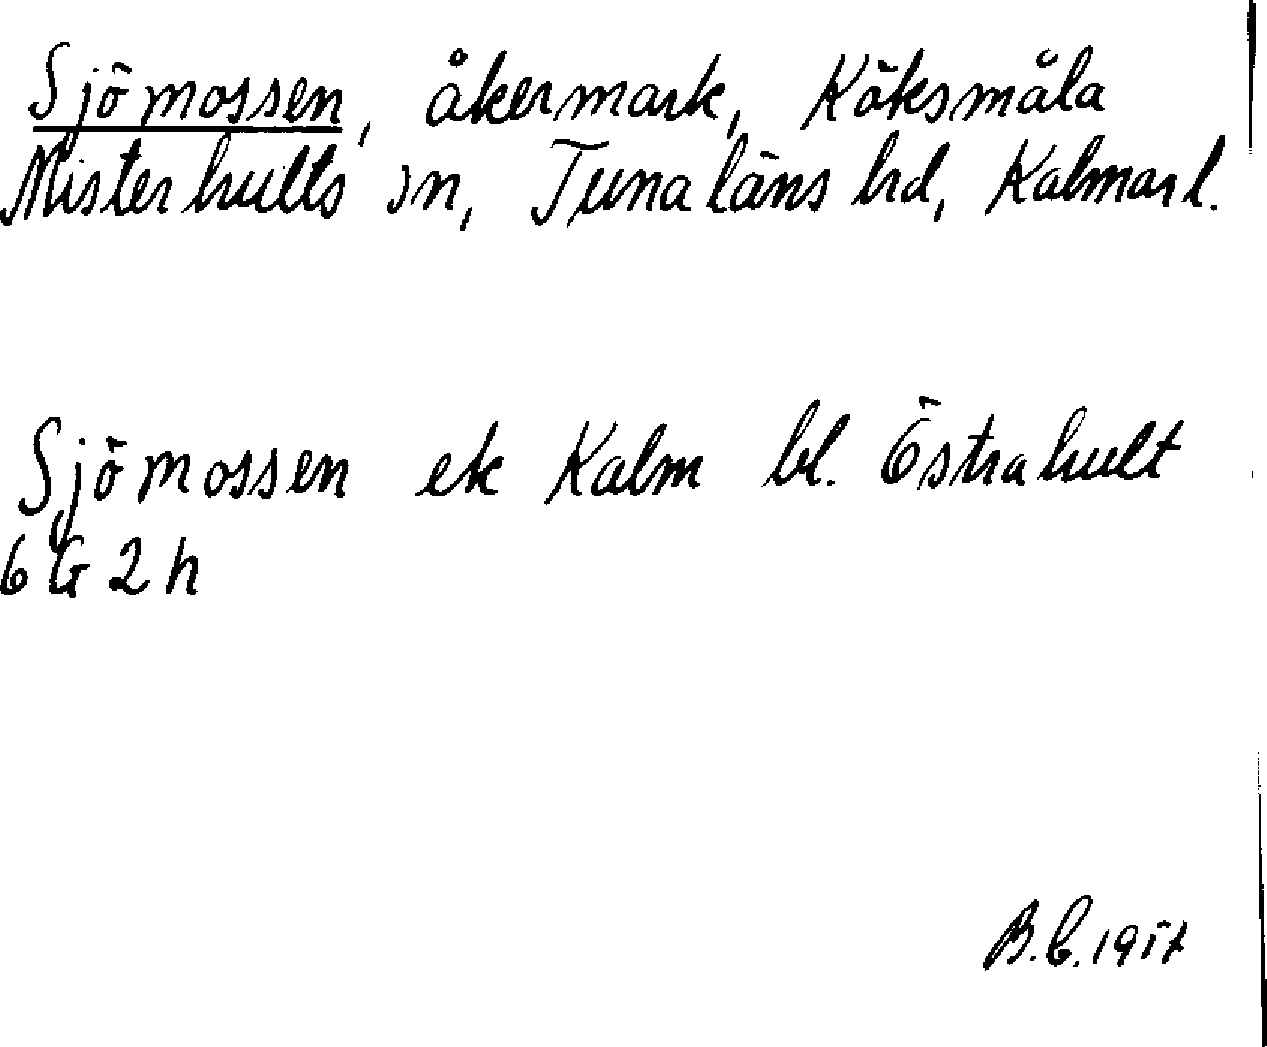 Sjömossen, åkermark, Köksmåla
Misterhults sn, Tunaläns hd, Kalmar l.
Sjömossen ek Kalm bl. Östrahult
6G 2h